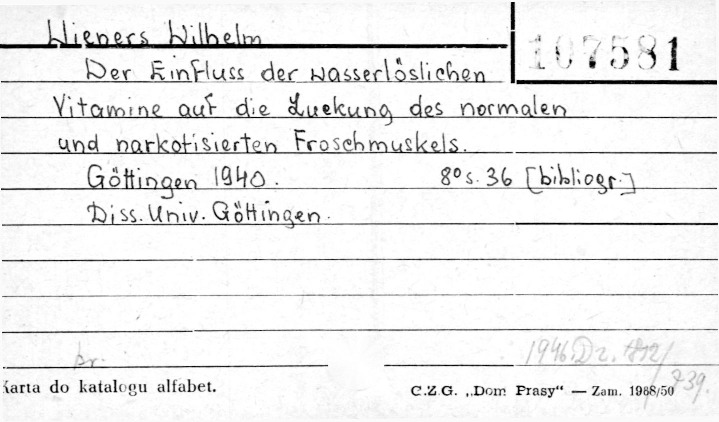 Wieners Wilhelm
107581
Der Einfluss der wasserlöslichen
Vitamine auf die Zuckung des normalen
und narkotisierten Froschmuskels.
Göttingen 1940. 8º s. 36 [bibliogr.]
Diss. Univ. Göttingen.
1946 Dz.
br.
739.
Karta do katalogu alfabet. C.Z.G. „Dom Prasy“ — Zam. 1968/50